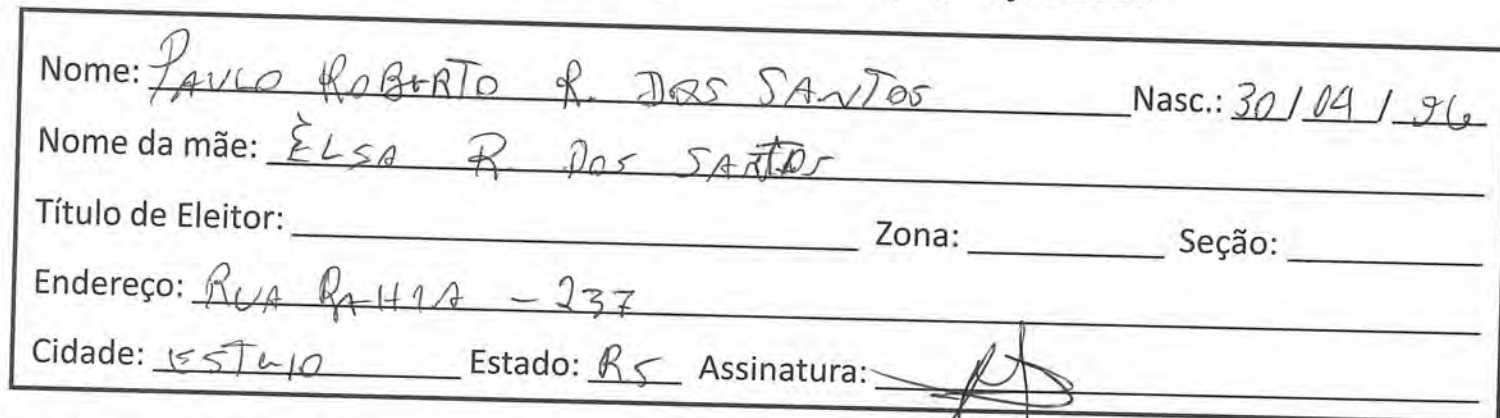 Nome: PAULO ROBERTO R. DOS SANTOS Nasc.: 30 / 04 / 96
Nome da mãe: ELSA R DOS SANTOS
Título de Eleitor: Zona: Seção:
Endereço: RUA BAHIA - 237
Cidade: ESTEIO Estado: RS Assinatura: